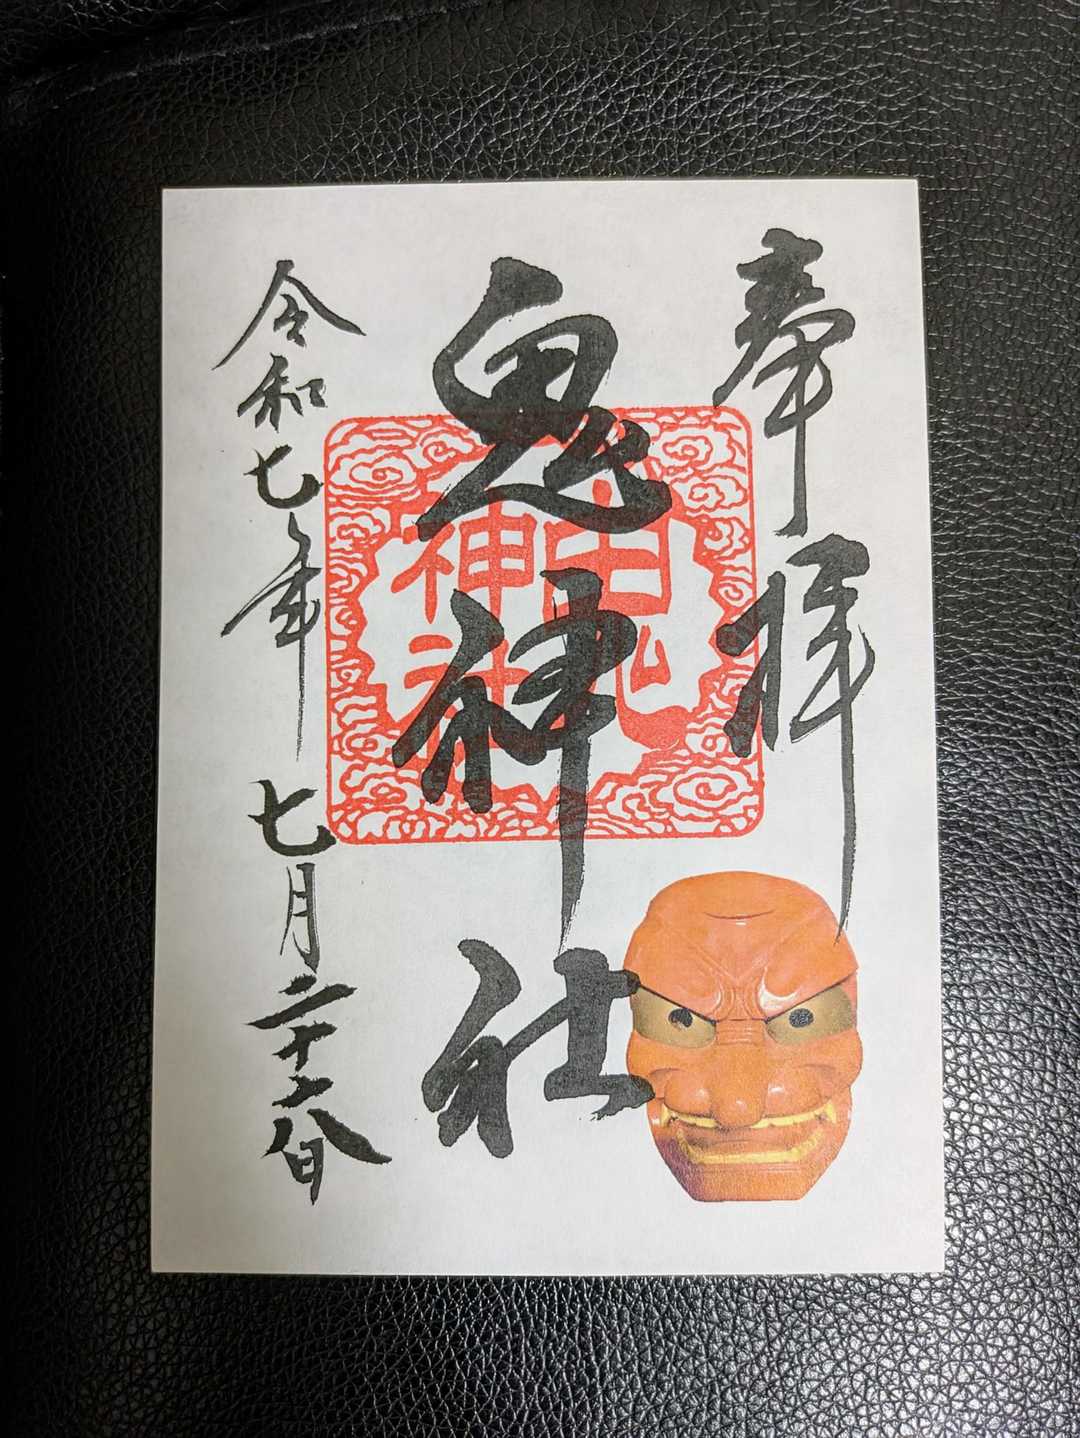 奉拝
鬼神社
鬼神社
令和七年七月二十六日